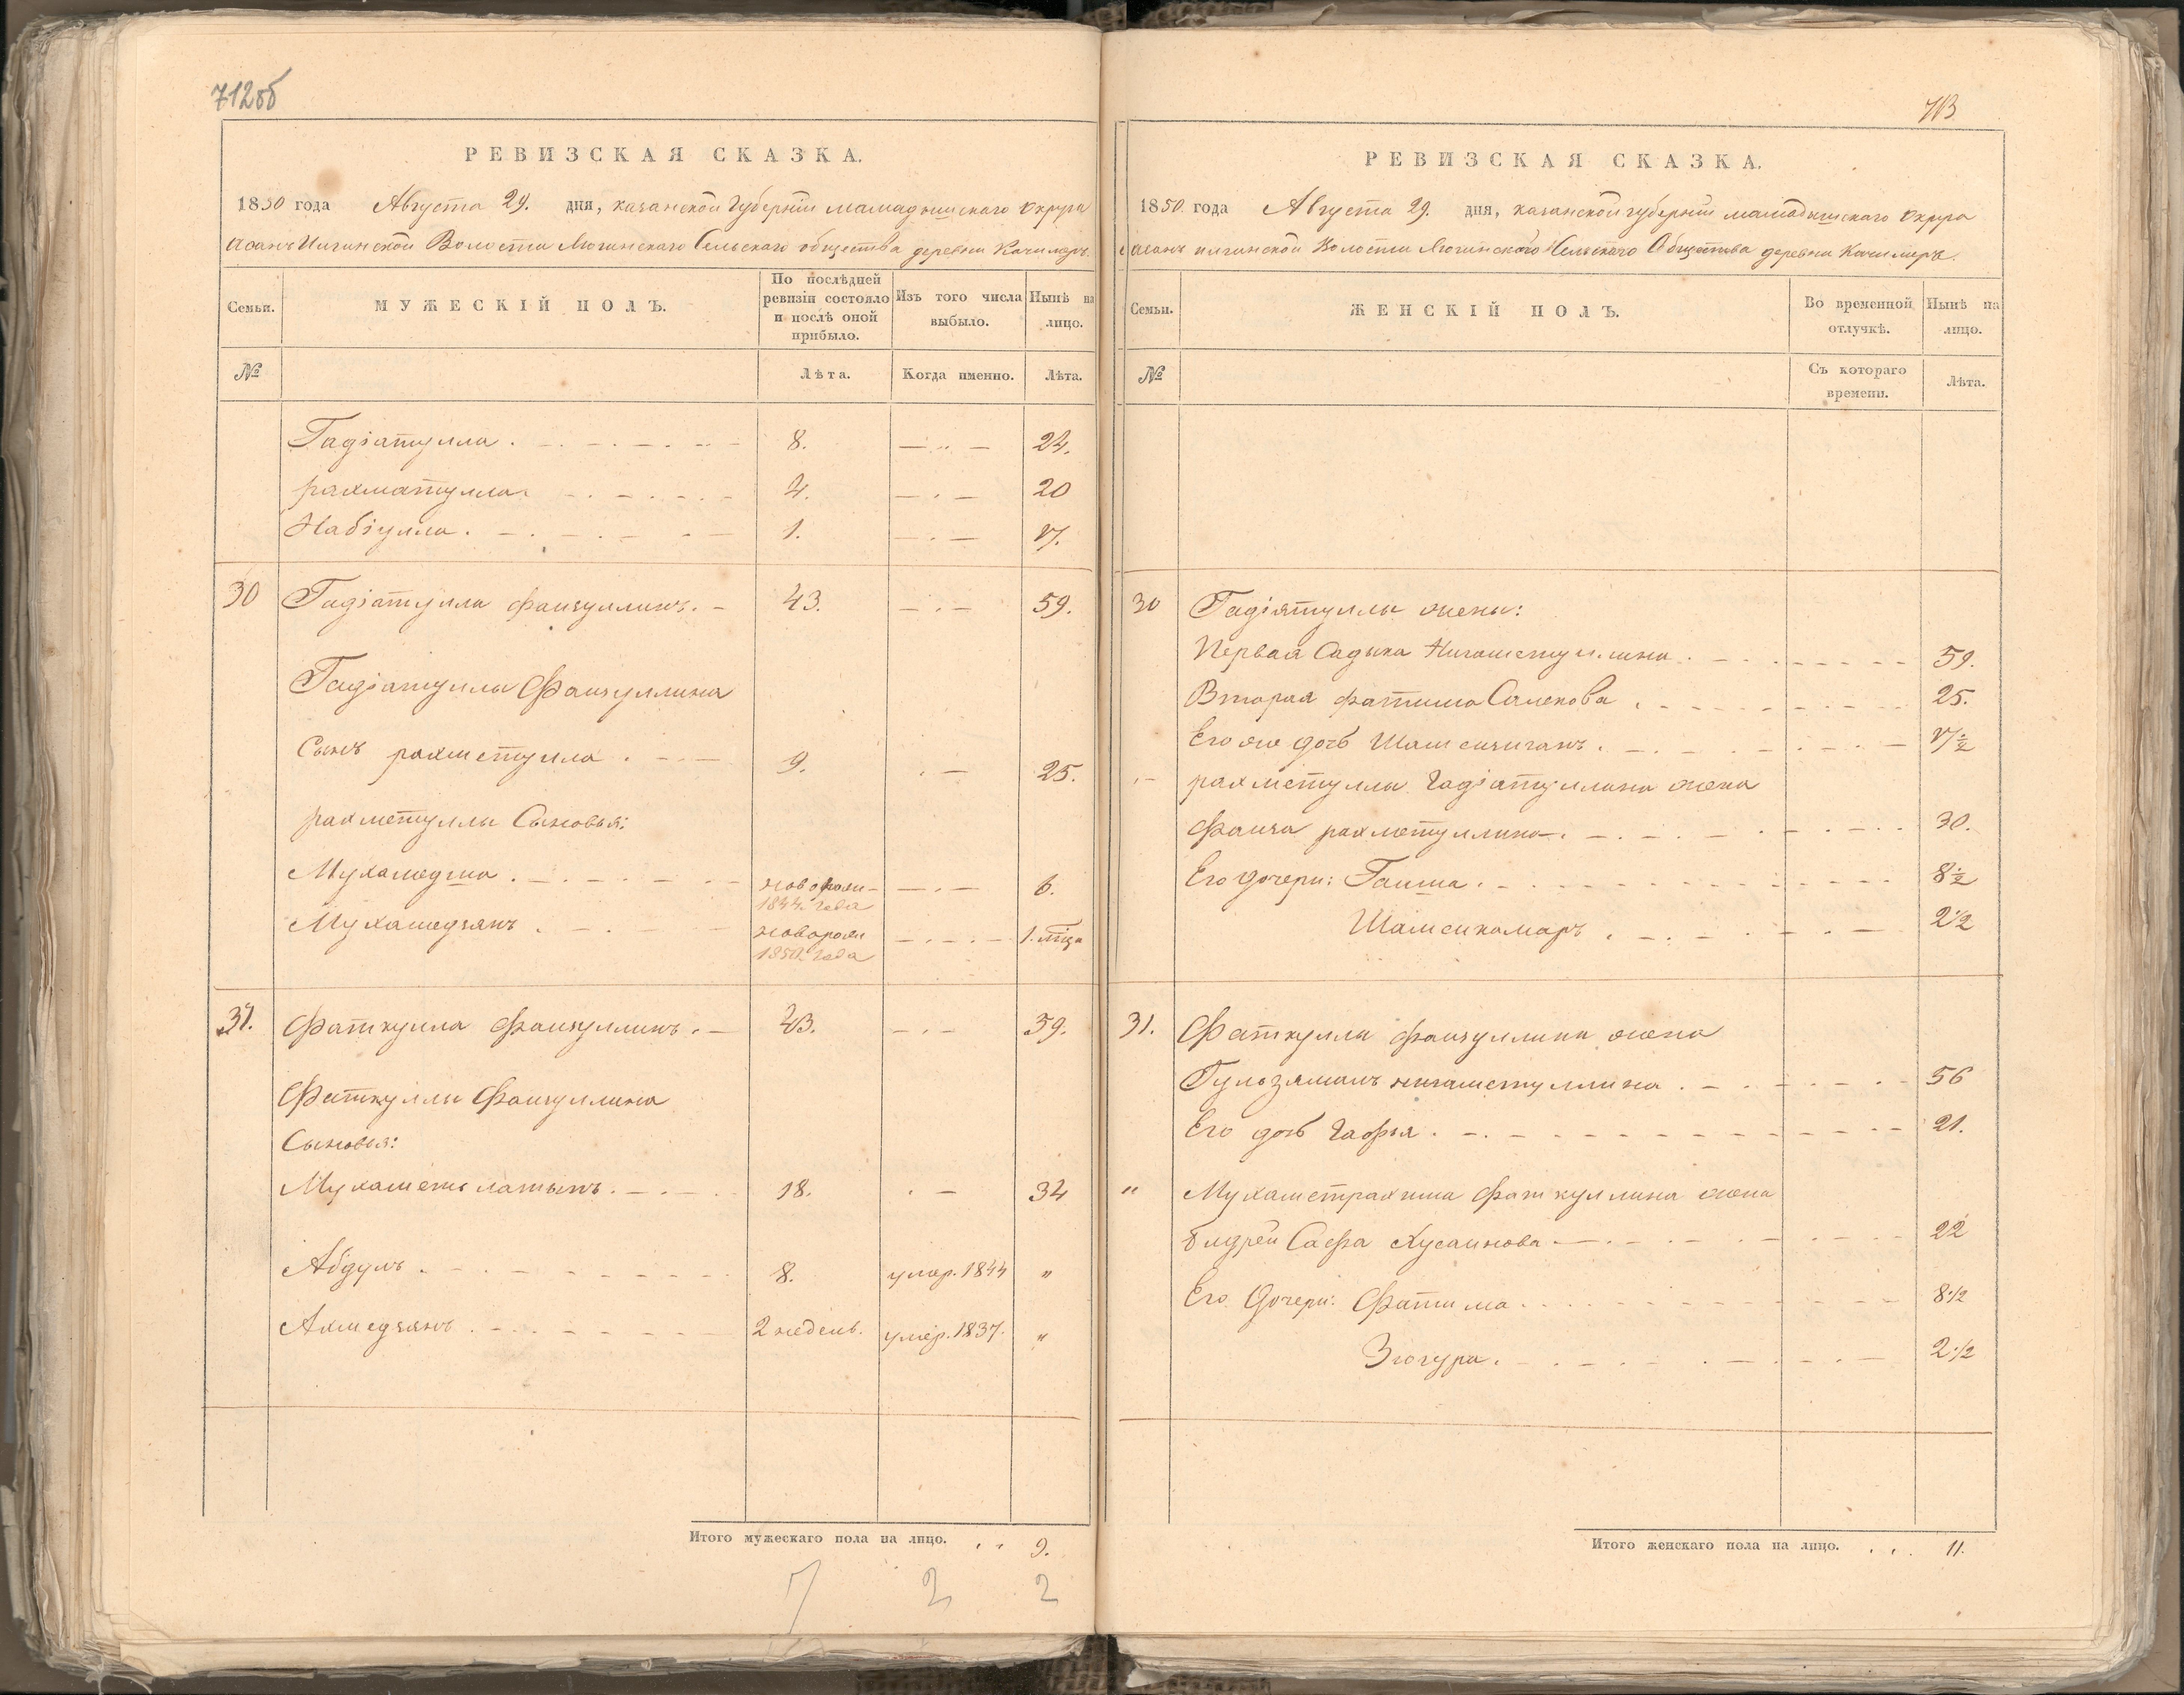 712об
РЕВИЗСКАЯ СКАЗКА.
1850 года Августа 29. дня, казанской Губерніи мамадышскаго Округа
асанъ Илгинской Волости Люгинскаго Сельскаго общества деревни Качимеръ.
Семьи. МУЖЕСКІЙ ПОЛЪ. По послѣдней ревизіи состояло и послѣ оной прибыло. Изъ того числа выбыло. Нынѣ на лицо.
№ Лѣта. Когда именно. Лѣта.
Гадіатулла 8. 24.
рахматулла 4. 20
Набіулла 1. 17.
30 Гадіатулла Фаизуллинъ. 43. 59.
Гадіатуллы Фаизуллина
Сынъ рахметулла 9. 25.
рахметуллы Сыновья:
Мухамедша новорож- 1844. года 6.
Мухамедзянъ новорож 1850. года 1. мѣца
31. Фаткулла Фаизуллинъ. 43. 59.
Фаткуллы Фаизуллина
Сыновья:
Мухаметъ латыпъ 18. 34
Абдулъ 8. умер. 1844 "
Ахмедзянъ 2 недель. умер. 1837. "
Итого мужескаго пола на лицо. 9.
7 2 2
713
РЕВИЗСКАЯ СКАЗКА.
1850 года Августа 29. дня, казанской губерніи мамадышскаго Округа
асанъ илгинской Волости Люгинскаго Сельскаго Общества деревни Качимеръ.
Семьи. ЖЕНСКІЙ ПОЛЪ. Во временной отлучкѣ. Нынѣ на лицо.
№ Съ котораго времени. Лѣта.
30 Гадіятуллы жены:
Первая Садыка Нигаметуллина 59.
Вторая фатима Салекова 25.
Его же дочь Шамсинганъ 17½
рахметуллы Гадіатуллина жена
Фаиза рахметуллина 30.
Его дочери: Гаиша 8½
Шамсикамаръ 2½
31. Фаткуллы Фаизуллина жена
Гульзяманъ нигаметуллина 56
Его дочь Гафья 21.
" Мухаметрахима Фаткуллина жена
Бидрей Сафа Хусаинова 22
Его Дочери: Фатима 8½
Зюгура 2½
Итого женскаго пола на лицо. 11.